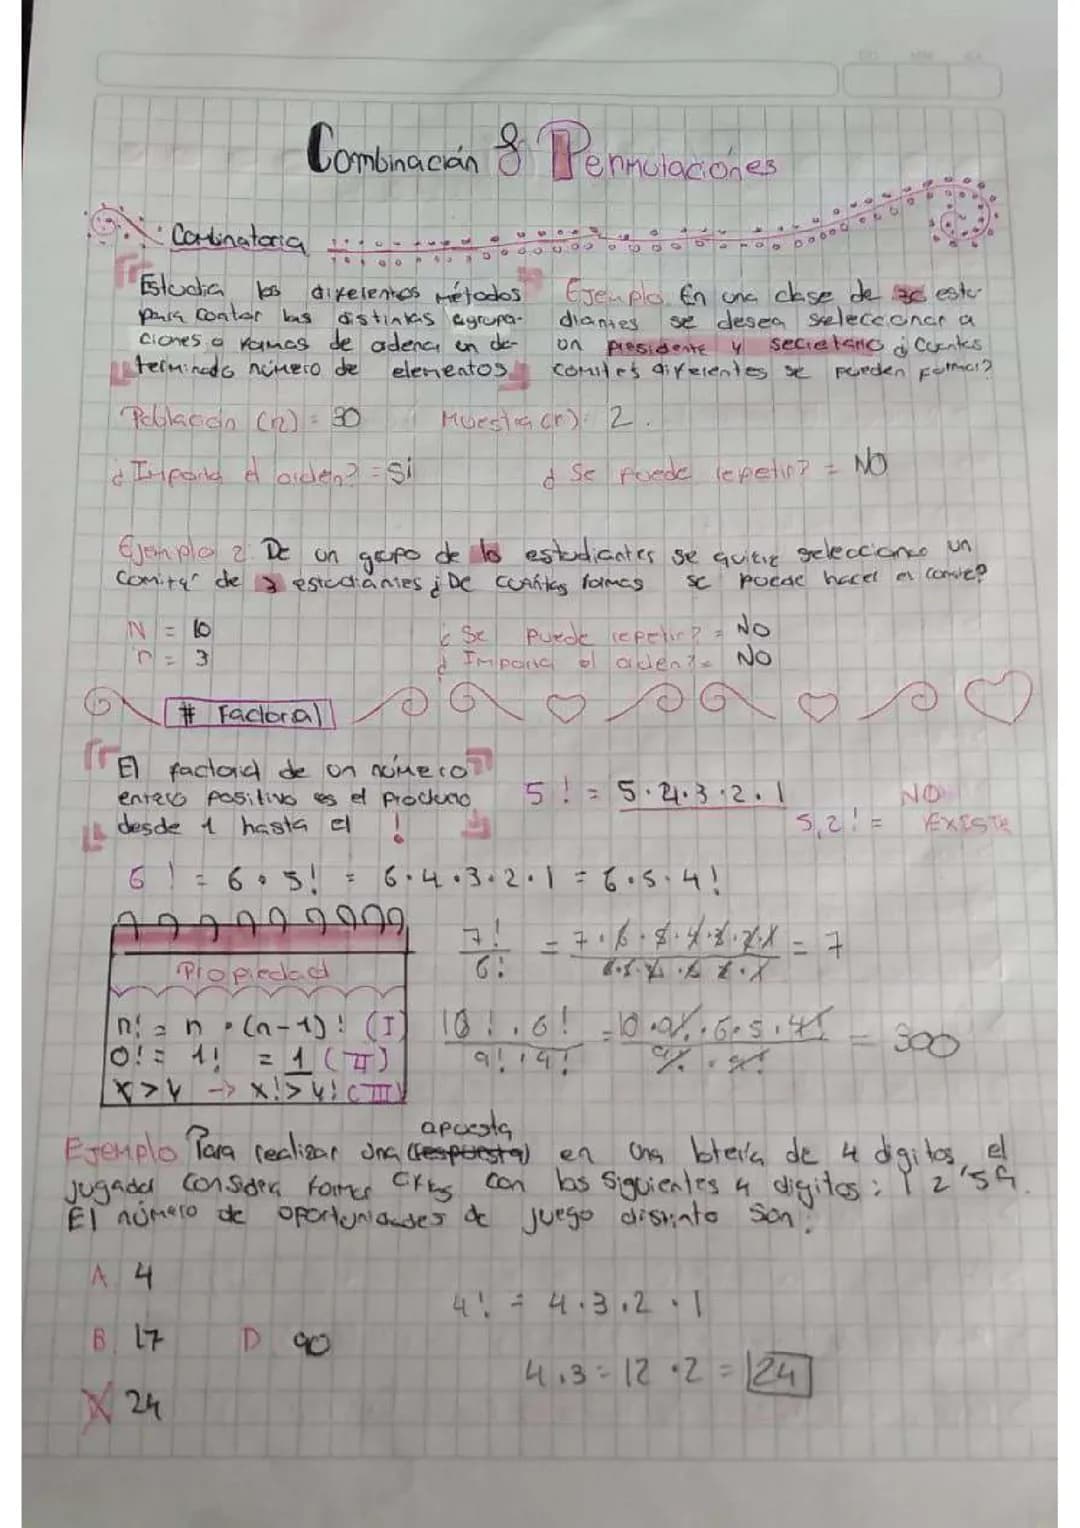 Combinación & Permutaciones
Combinatoria
Estudia los diferentes métodos
para contar las distintas agrupa-
ciones o ramas de odenar en de-
terminado número de elementos
Ejemplo En una clase de 30 estu-
diantes se desea seleccionar a
un presidente y secretario ¿Cuantos
comites diferentes se pueden formar?
Población (n) = 30 Muestra (r): 2.
¿Importa el orden? = Si ¿Se puede repetir? = NO
Ejemplo 2 De un grupo de 10 estudiantes se quiere seleccionar un
comite de 3 estudiantes ¿De cuántas formas se puede hacer el comite?
N = 10 ¿Se puede repetir? = NO
r = 3 ¿Importa el orden? = NO
# Factorial
El factorial de un número
entero positivo es el producto
desde 1 hasta el !
5! = 5.4.3.2.1
5,2! = NO EXISTE
6! = 6.5! = 6.4.3.2.1 = 6.5.4!
Propiedad
n! = n . (n-1)! (I)
0! = 1! = 1 (II)
x>y -> x!>y! (III)
7! / 6! = 7.6.5.4.3.2.1 / 6.5.4.3.2.1 = 7
10!.6! / 9!.4! = 10.9!.6.5.4! / 9!.4! = 300
Ejemplo Para realizar una (respuesta) apuesta en una lotería de 4 digitos, el
jugador considera formar con los siguientes 4 digitos: 1 2 5 9.
El número de oportunidades de juego distinto son:
A 4
B. 17 D 90
X 24
4! = 4.3.2.1
4.3 = 12 .2 = 24